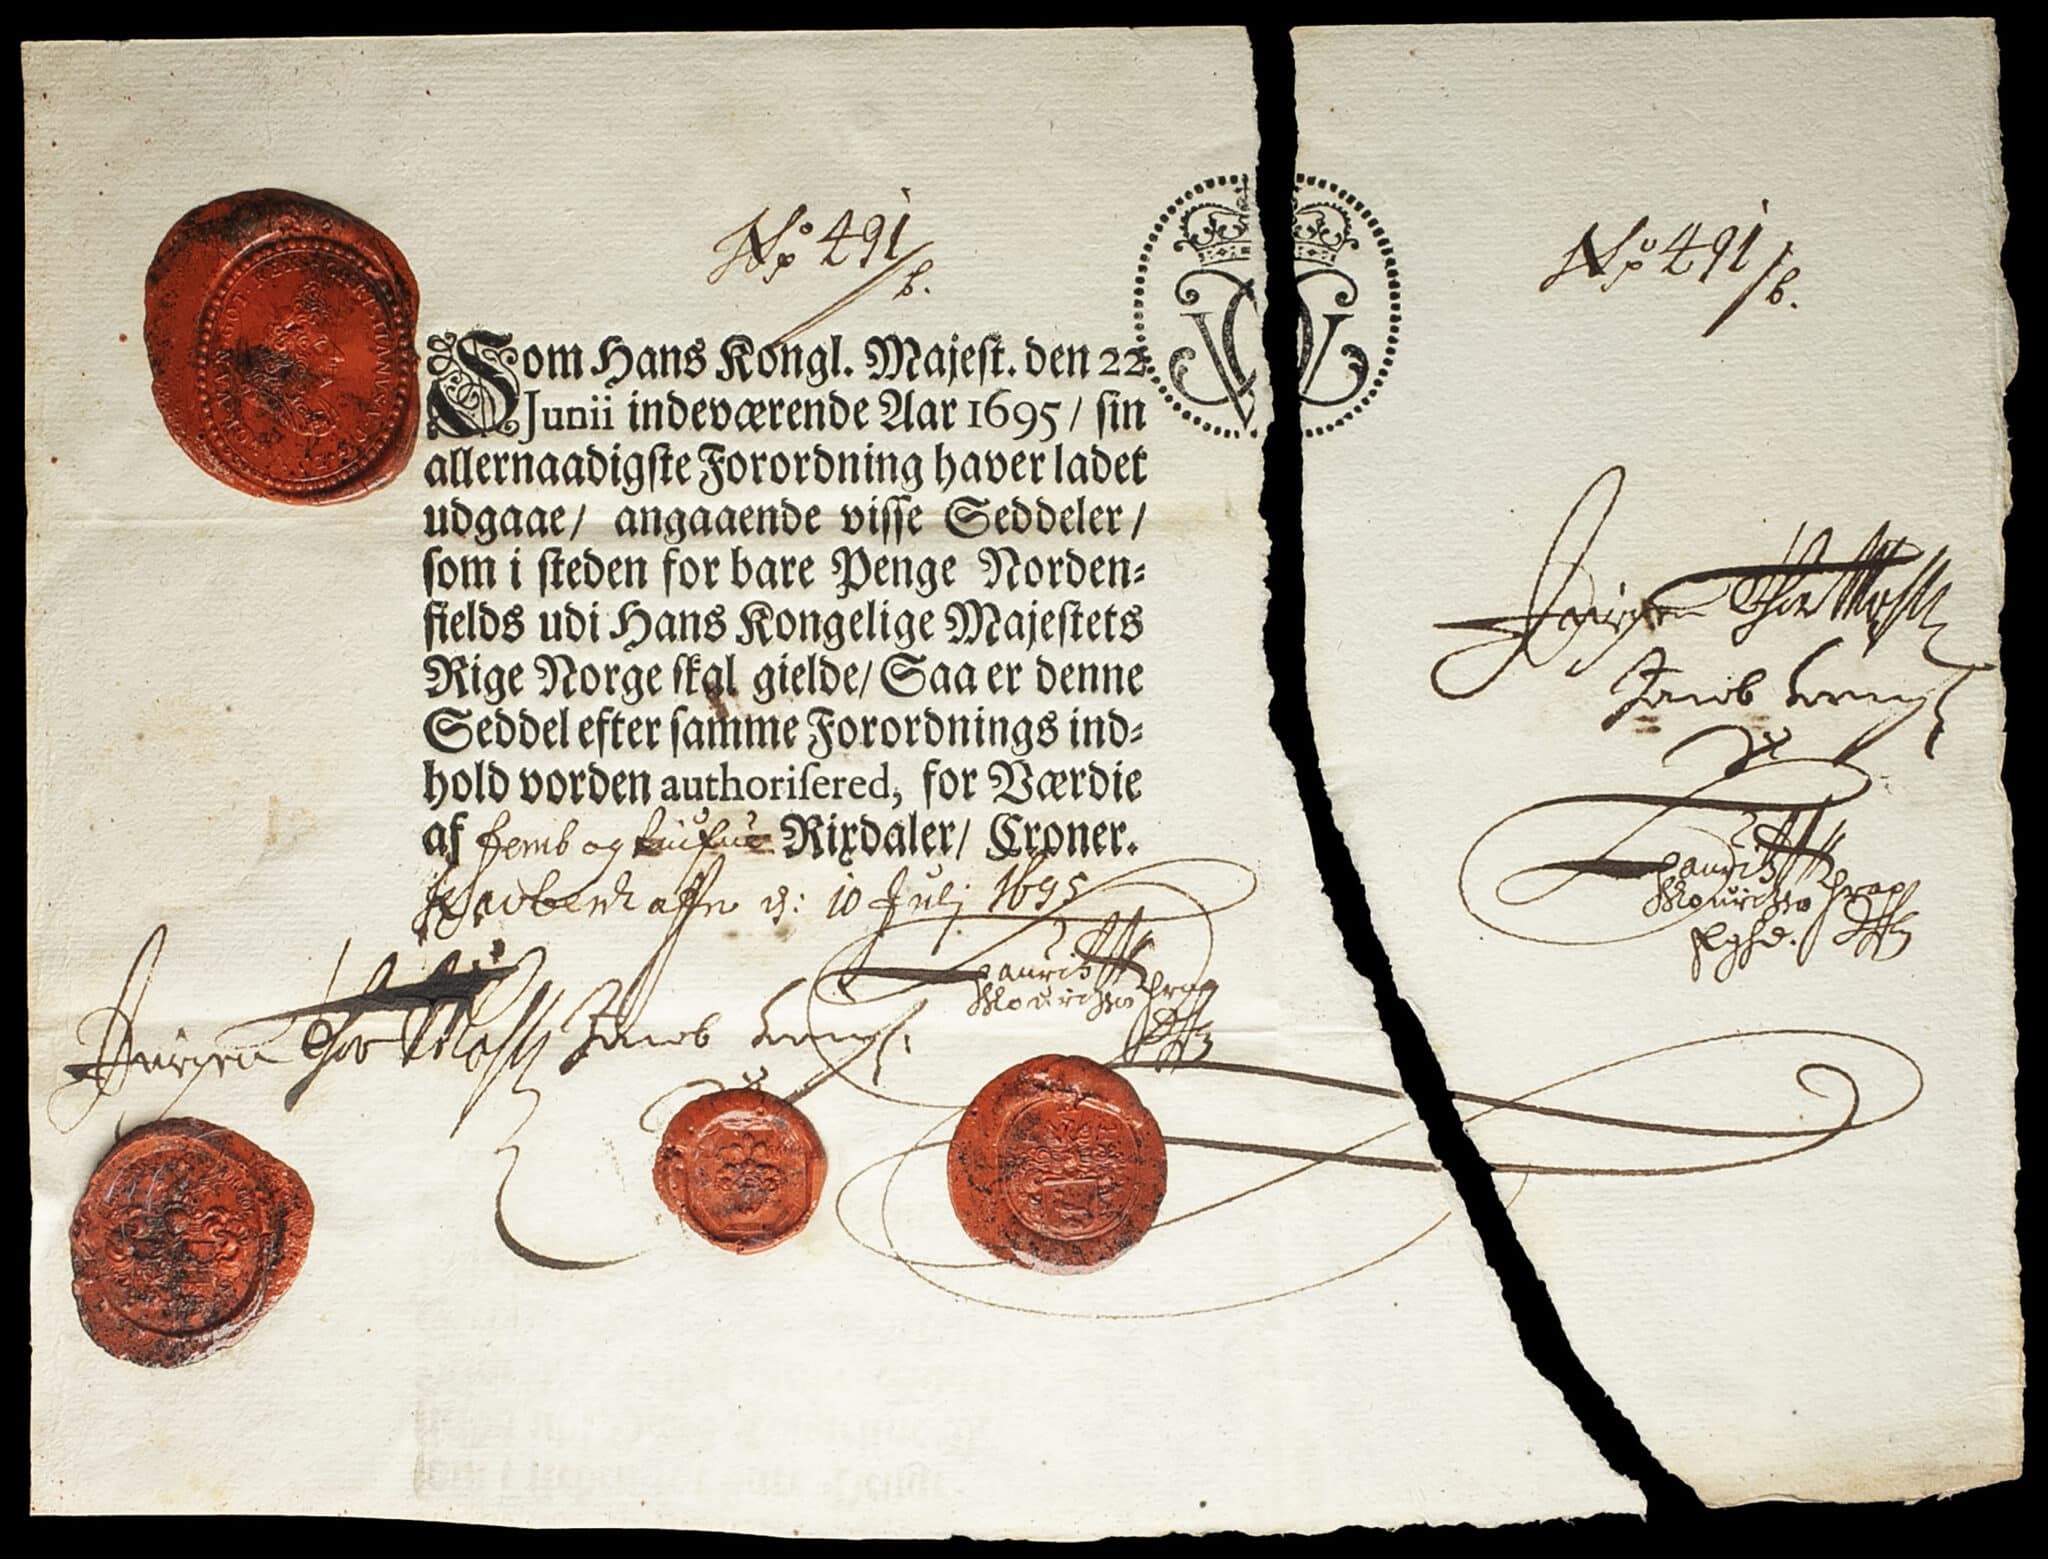 No 491/b.
No 491/b.
Som Hans Kongl. Majeſt. den 22
Junii indeværende Aar 1695/ ſin
allernaadigſte Forordning haver ladet
udgaae/ angaaende viſſe Seddeler/
ſom i ſteden for bare Penge Norden-
fields udi Hans Kongelige Majeſtets
Rige Norge ſkal gielde/ Saa er denne
Seddel efter ſamme Forordnings ind-
hold vorden authoriſered, for Værdie
af femb og Rixdaler/ Croner.
d: 10 Julj 1695
Jürgen thor Møhlen Jacob
Lauritz
Mouritzøn
Jürgen thor Møhlen
Jacob
Lauritz
Mouritzøn